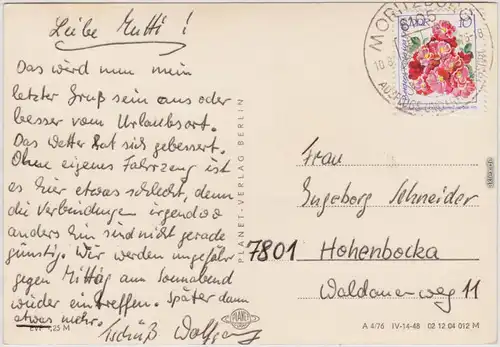 Liebe Mutti!
Das wird nun mein
letzter Gruß sein aus oder
besser vom Urlaubsort.
Das Wetter hat sich gebessert.
Ohne eigenes Fahrzeug ist
es hier etwas schlecht, denn
die Verbindungen irgendwo
anders hin sind nicht gerade
günstig. Wir werden ungefähr
gegen Mittag am Sonnabend
wieder eintreffen. Später dann
etwas mehr.
Tschüß Wolfgang
EVP 0,25 M
PLANET-VERLAG BERLIN
PLANET
MORITZBURG
DDR
10
Frau
Ingeborg Schneider
7801 Hohenbocka
Waldauerweg 11
A 4/76 IV-14-48 02 12 04 012 M